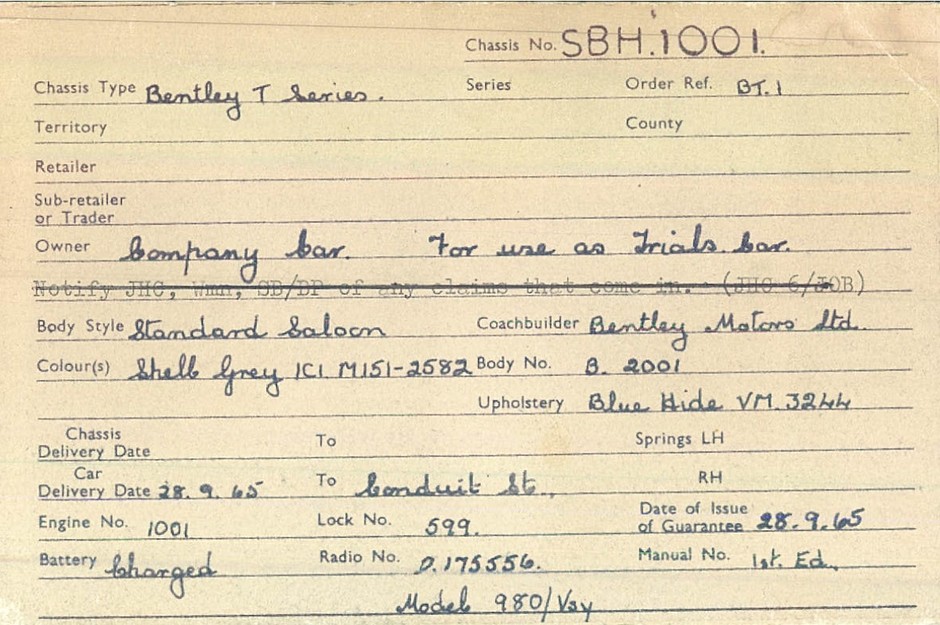 Chassis No. SBH.1001.
Chassis Type Bentley T Series. Series Order Ref. BT.1
Territory County
Retailer
Sub-retailer
or Trader
Owner Company Car. For use as Trials Car.
Notify JHC, Wmn, SB/DP of any claims that come in. (JHC 6/JOB)
Body Style Standard Saloon Coachbuilder Bentley Motors Ltd.
Colour(s) Shell Grey ICI M151-2582 Body No. B. 2001
Upholstery Blue Hide VM. 3244
Chassis
Delivery Date To Springs LH
Car
Delivery Date 28.9.65 To Conduit St., RH
Engine No. 1001 Lock No. 599. Date of Issue
of Guarantee 28.9.65
Battery Charged Radio No. D.175556. Manual No. 1st. Ed.,
Model 980/